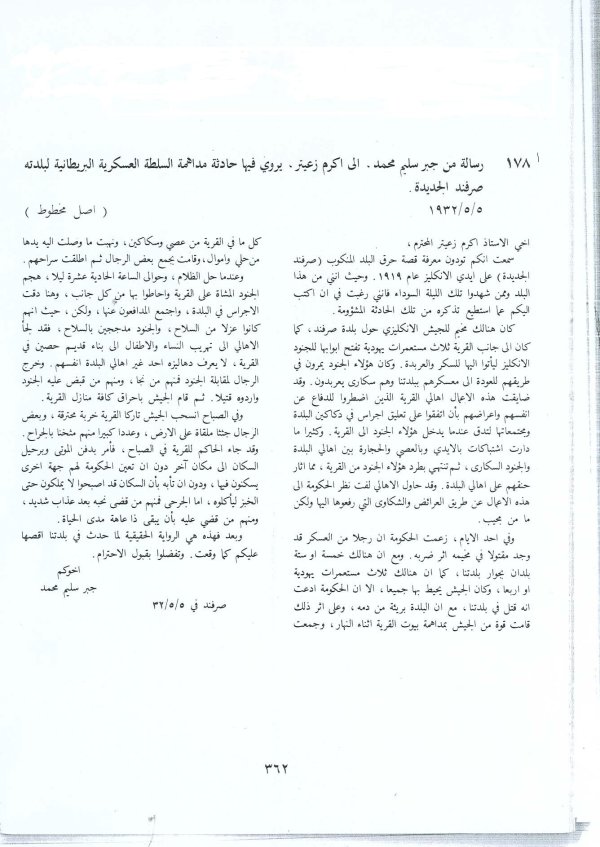 ١٧٨ رسالة من جبر سليم محمد. الى اكرم زعيتر. يروي فيها حادثة مداهمة السلطة العسكرية البريطانية لبلدته
صرفند الجديدة.
١٩٣٢/٥/٥
( اصل مخطوط )
اخي الاستاذ اكرم زعيتر المحترم،
سمعت انكم تودون معرفة قصة حرق البلد المنكوب (صرفند
الجديدة) على ايدي الانكليز عام ١٩١٩. وحيث انني من هذا
البلد وممن شهدوا تلك الليلة السوداء فانني رغبت في ان اكتب
اليكم عما استطيع تذكره من تلك الحادثة المشؤومة.
كان هنالك مخيم للجيش الانكليزي حول بلدة صرفند، كما
كان الى جانب القرية ثلاث مستعمرات يهودية تفتح ابوابها للجنود
الانكليز ليأتوا اليها للسكر والعربدة. وكان هؤلاء الجنود يمرون في
طريقهم للعودة الى معسكرهم ببلدتنا وهم سكارى يعربدون. وقد
ضايقت هذه الاعمال اهالي القرية الذين اضطروا للدفاع عن
انفسهم واعراضهم بأن اتفقوا على تعليق اجراس في دكاكين البلدة
ومجتمعاتها لتدق عندما يدخل هؤلاء الجنود الى القرية. وكثيرا ما
دارت اشتباكات بالايدي وبالعصي والحجارة بين اهالي البلدة
والجنود السكارى، ثم تنتهي بطرد هؤلاء الجنود من القرية، مما اثار
حنقهم على اهالي البلدة. وقد حاول الاهالي لفت نظر الحكومة الى
هذه الاعمال عن طريق العرائض والشكاوى التي رفعوها اليها ولكن
ما من مجيب.
وفي احد الايام، زعمت الحكومة ان رجلا من العسكر قد
وجد مقتولا في مخيمه اثر ضربه. ومع ان هنالك خمسة او ستة
بلدان بجوار بلدتنا، كما ان هنالك ثلاث مستعمرات يهودية
او اربعا، وكان الجيش يحيط بها جميعا، الا ان الحكومة ادعت
انه قتل في بلدتنا، مع ان البلدة بريئة من دمه، وعلى اثر ذلك
قامت قوة من الجيش بمداهمة بيوت القرية اثناء النهار، وجمعت
كل ما في القرية من عصي وسكاكين، ونهبت ما وصلت اليه يدها
من حلي واموال، وقامت بجمع بعض الرجال ثم اطلقت سراحهم.
وعندما حل الظلام، وحوالى الساعة الحادية عشرة ليلا، هجم
الجنود المشاة على القرية واحاطوا بها من كل جانب، وهنا دقت
الاجراس في البلدة، واجتمع المدافعون عنها، ولكن، حيث انهم
كانوا عزلا من السلاح، والجنود مدججين بالسلاح، فقد لجأ
الاهالي الى تهريب النساء والاطفال الى بناء قديم حصين في
القرية، لا يعرف دهاليزه احد غير اهالي البلدة انفسهم. وخرج
الرجال لمقابلة الجنود فمنهم من نجا، ومنهم من قبض عليه الجنود
واردوه قتيلا. ثم قام الجيش باحراق كافة منازل القرية.
وفي الصباح انسحب الجيش تاركا القرية خربة محترقة، وبعض
الرجال جثثا ملقاة على الارض، وعددا كبيرا منهم مثخنا بالجراح.
وقد جاء الحاكم للقرية في الصباح، فأمر بدفن الموتى وبرحيل
السكان الى مكان آخر دون ان تعين الحكومة لهم جهة اخرى
يسكنون فيها، ودون ان تأبه بأن السكان قد اصبحوا لا يملكون حتى
الخبز ليأكلوه، اما الجرحى فمنهم من قضى نحبه بعد عذاب شديد،
ومنهم من قضي عليه بأن يبقى ذا عاهة مدى الحياة.
وبعد فهذه هي الرواية الحقيقية لما حدث في بلدتنا اقصها
عليكم كما وقعت. وتفضلوا بقبول الاحترام.
اخوكم
جبر سليم محمد
صرفند في ٣٢/٥/٥
٣٦٢